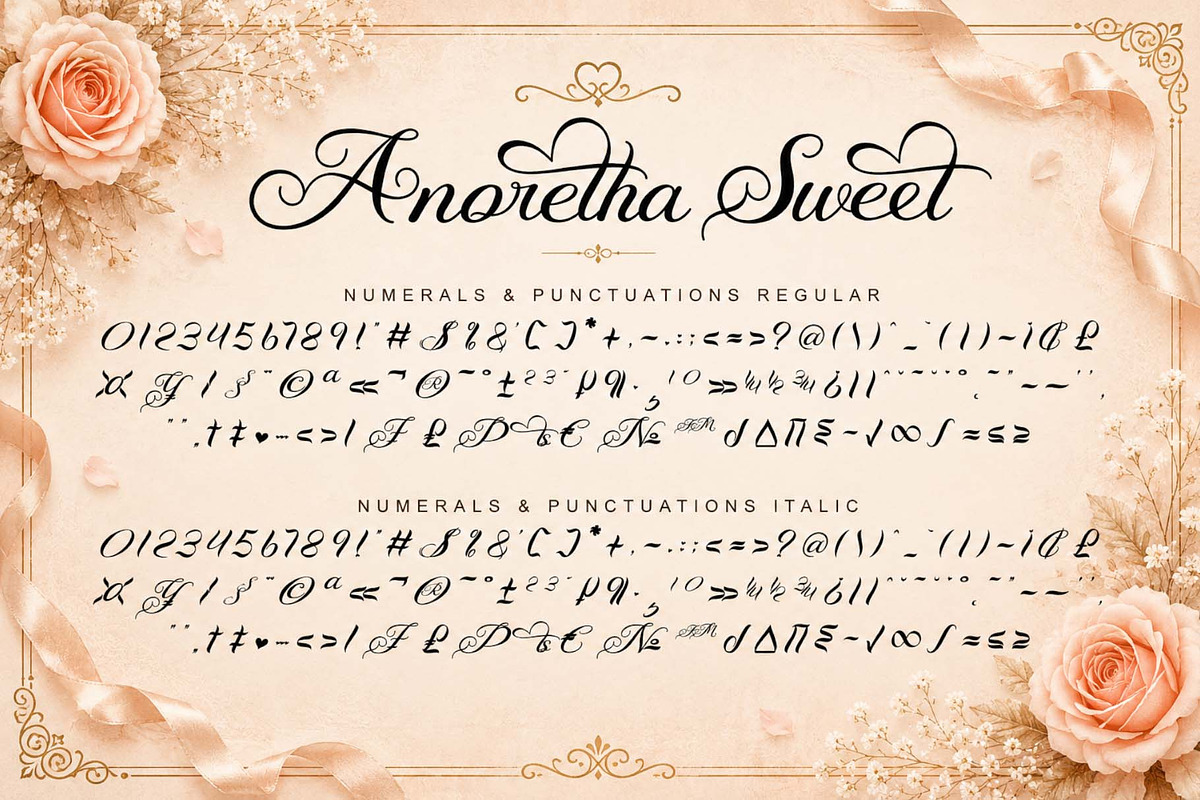 Anoretha Sweet
NUMERALS & PUNCTUATIONS REGULAR
0123456789!"#$%&'[]*+,-.:;<=>?@(\)^_`{|}~¡¢£
¤¥¦§¨©ª«¬®¯°±²³´µ¶·¸¹º»¼½¾¿
"".†‡•…<>/₣₤₧€№™∂∆∏∑−√∞∫≈≤≥
NUMERALS & PUNCTUATIONS ITALIC
0123456789!"#$%&'[]*+,-.:;<=>?@(\)^_`{|}~¡¢£
¤¥¦§¨©ª«¬®¯°±²³´µ¶·¸¹º»¼½¾¿
"".†‡•…<>/₣₤₧€№™∂∆∏∑−√∞∫≈≤≥